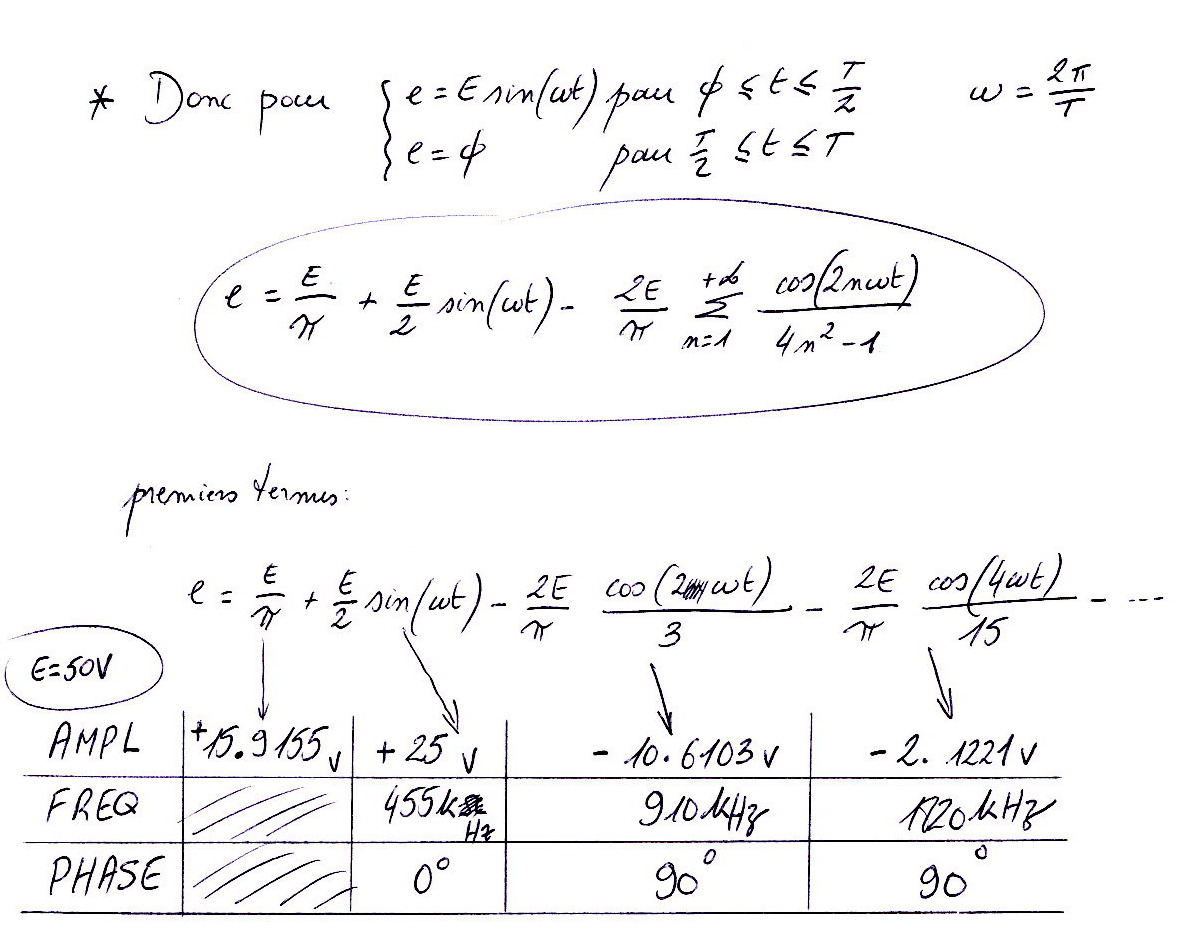 * Donc pour { e = E sin(ωt) pour ϕ ≤ t ≤ T/2 ω = 2π/T
e = ϕ pour T/2 ≤ t ≤ T
e = E/π + E/2 sin(ωt) - 2E/π Σ_{n=1}^{+∞} cos(2nωt)/(4n² - 1)
premiers termes:
e = E/π + E/2 sin(ωt) - 2E/π cos(2ωt)/3 - 2E/π cos(4ωt)/15 - ...
E=50V
AMPL +15.9155V +25V -10.6103V -2.1221V
FREQ 455kHz 910kHz 1820kHz
PHASE 0° 90° 90°